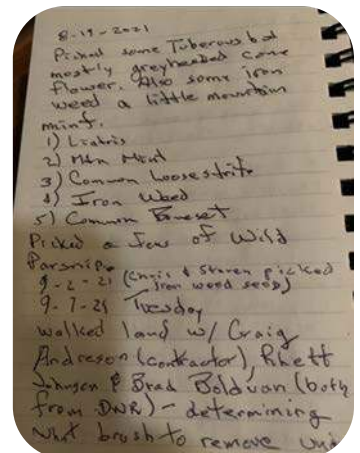 8-19-2021
Picked some Tuberous but
mostly greyheaded cone
flower. Also some iron
weed a little mountain
mint.
1) Liatris
2) Mtn Mint
3) Common Loosestrife
4) Iron Weed
5) Common Boneset
Picked a few of Wild
Parsnip.
9-2-21 (Chris & Steven picked
Iron weed seeds)
9-7-21 Tuesday
walked land w/ Craig
Andreson (contractor), Rhett
Johnson & Brad Bolduan (both
from DNR) - determining
what brush to remove